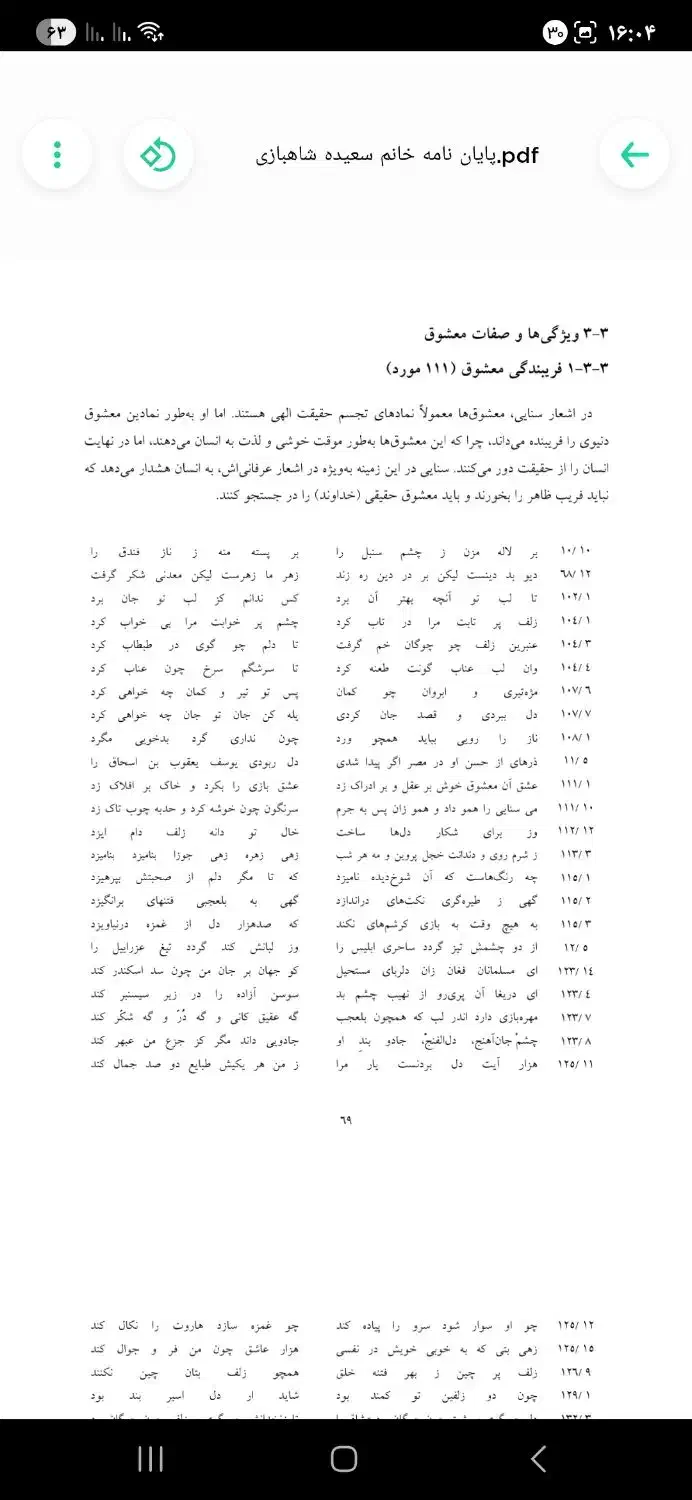 ۱۶:۰۴ ۳۰ ۶۳
پایان نامه خانم سعیده شاهبازی.pdf
۳-۳ ویژگی‌ها و صفات معشوق
۱-۳-۳ فریبندگی معشوق (۱۱۱ مورد)
در اشعار سنایی، معشوق‌ها معمولاً نمادهای تجسم حقیقت الهی هستند. اما او به‌طور نمادین معشوق
دنیوی را فریبنده می‌داند، چرا که این معشوق‌ها به‌طور موقت خوشی و لذت به انسان می‌دهند، اما در نهایت
انسان را از حقیقت دور می‌کنند. سنایی در این زمینه به‌ویژه در اشعار عرفانی‌اش، به انسان هشدار می‌دهد که
نباید فریب ظاهر را بخورند و باید معشوق حقیقی (خداوند) را در جستجو کنند.
۱۰/۱۰ بر لاله مزن ز چشم سنبل را بر پسته منه ز ناز فندق را
۶۸/۱۲ دیو بد دینست لیکن بر در دین ره زند زهر ما زهرست لیکن معدنی شکر گرفت
۱۰۲/۱ تا لب تو آنچه بهتر آن برد کس ندانم کز لب تو جان برد
۱۰٤/۱ زلف پر تابت مرا در تاب کرد چشم پر خوابت مرا بی خواب کرد
۱۰٤/۳ عنبرین زلف چو چوگان خم گرفت تا دلم چو گوی در طبطاب کرد
۱۰٤/٤ وان لب عناب گونت طعنه کرد تا سرشگم سرخ چون عناب کرد
۱۰۷/٦ مژه‌تیری و ابروان چو کمان پس تو تیر و کمان چه خواهی کرد
۱۰۷/۷ دل ببردی و قصد جان کردی یله کن جان تو جان چه خواهی کرد
۱۰۸/۱ ناز را رویی بباید همچو ورد چون نداری گرد بدخویی مگرد
۱۱/٥ ذرهای از حسن او در مصر اگر پیدا شدی دل ربودی یوسف یعقوب بن اسحاق را
۱۱۱/۱ عشق آن معشوق خوش بر عقل و بر ادراک زد عشق بازی را بکرد و خاک بر افلاک زد
۱۱۱/۱۰ می سنایی را همو داد و همو زان پس به جرم سرنگون چون خوشه کرد و حدبه چوب تاک زد
۱۱۲/۱۲ وز برای شکار دل‌ها ساخت خال تو دانه زلف دام ایزد
۱۱۳/۳ ز شرم روی و دندانت خجل پروین و مه هر شب زهی زهره زهی جوزا بنامیزد بنامیزد
۱۱٥/۱ چه رنگ‌هاست که آن شوخ‌دیده نامیزد که تا مگر دلم از صحبتش بپرهیزد
۱۱٥/۲ گهی ز طیره‌گری نکت‌های دراندازد گهی به بلعجبی فتنهای برانگیزد
۱۱٥/۳ به هیچ وقت به بازی کرشم‌های نکند که صدهزار دل از غمزه درنیاویزد
۱۲/٥ از دو چشمش تیز گردد ساحری ابلیس را وز لبانش کند گردد تیغ عزراییل را
۱۲۳/۱٤ ای مسلمانان فغان زان دلربای مستحیل کو جهان بر جان من چون سد اسکندر کند
۱۲۳/٤ ای دریغا آن پری‌رو از نهیب چشم بد سوسن آزاده را در زیر سیسنبر کند
۱۲۳/۷ مهره‌بازی دارد اندر لب که همچون بلعجب گه عقیق کانی و گه دُرّ و گه شکّر کند
۱۲۳/۸ چشمْ جان‌آهنج، دل‌الفنجْ، جادو بندِ او جادویی داند مگر کز جزع من عبهر کند
۱۲٥/۱۱ هزار آیت دل بردنست یار مرا ز من هر یکیش طبایع دو صد جمال کند
٦۹
۱۲٥/۱۲ چو او سوار شود سرو را پیاده کند چو غمزه سازد هاروت را نکال کند
۱۲٥/۱٥ زهی بتی که به خوبی خویش در نفسی هزار عاشق چون من فر و جوال کند
۱۲٦/۹ زلف پر چین ز بهر فتنه خلق همچو زلف بتان چین نکنند
۱۲۹/۱ چون دو زلفین تو کمند بود شاید ار دل اسیر بند بود